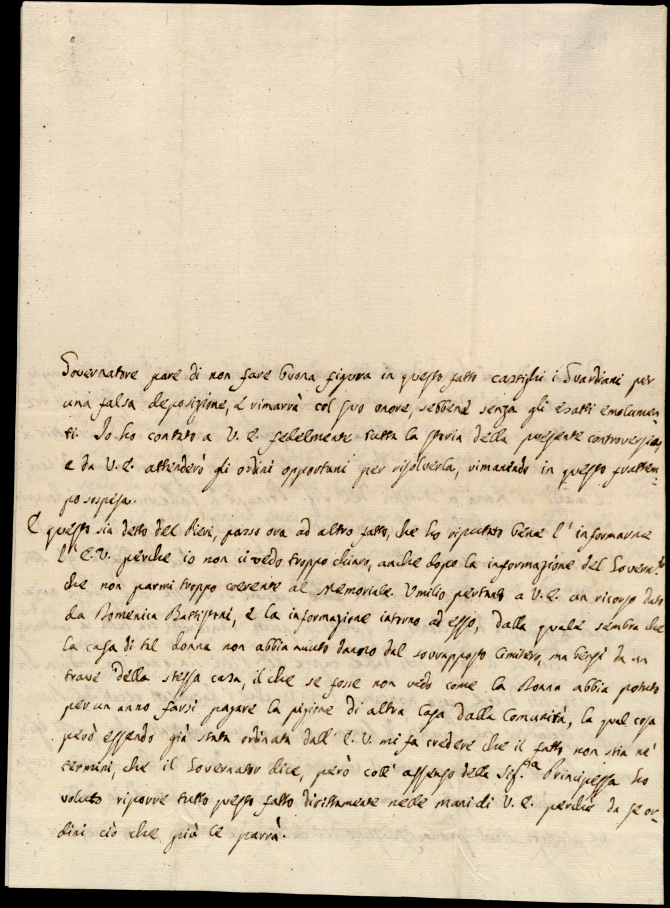 Governatore pare di non fare buona figura in questo fatto castighi i Guardiani per
una falsa deposizione, e rimarrà col suo onore, sebbene senza gli esatti emolumen=
ti. Io ho contato a V. E. fedelmente tutta la storia della presente controversia,
e da V. E. attenderò gli ordini opportuni per risolverla, rimanendo in questo frattem=
po sospeso.
E questo sia detto del Pieri, passo ora ad altro fatto, che ho riputato bene l'informarne
l'E. V. perché io non ci vedo troppo chiaro, anche dopo la informazione del Govern.re
che non parmi troppo coerente al Memoriale. Umilio pertanto a V. E. un ricorso dato
da Domenica Battistoni, e la informazione intorno ad esso, dalla quale sembra che
la casa di tal donna non abbia avuto danno dal sovrapposto Cimitero, ma bensì da un
trave della stessa casa, il che se fosse non vedo come la Donna abbia potuto
per un anno farsi pagare la pigione di altra Casa dalla Comunità, la qual cosa
però essendo già stata ordinata dall' E. V. mi fa credere che il fatto non stia ne'
termini, che il Governator dice, però coll' assenso della Sig.ra Principessa ho
voluto riporre tutto questo fatto direttamente nelle mani di V. E. perché da se or=
dini ciò che più le parrà.